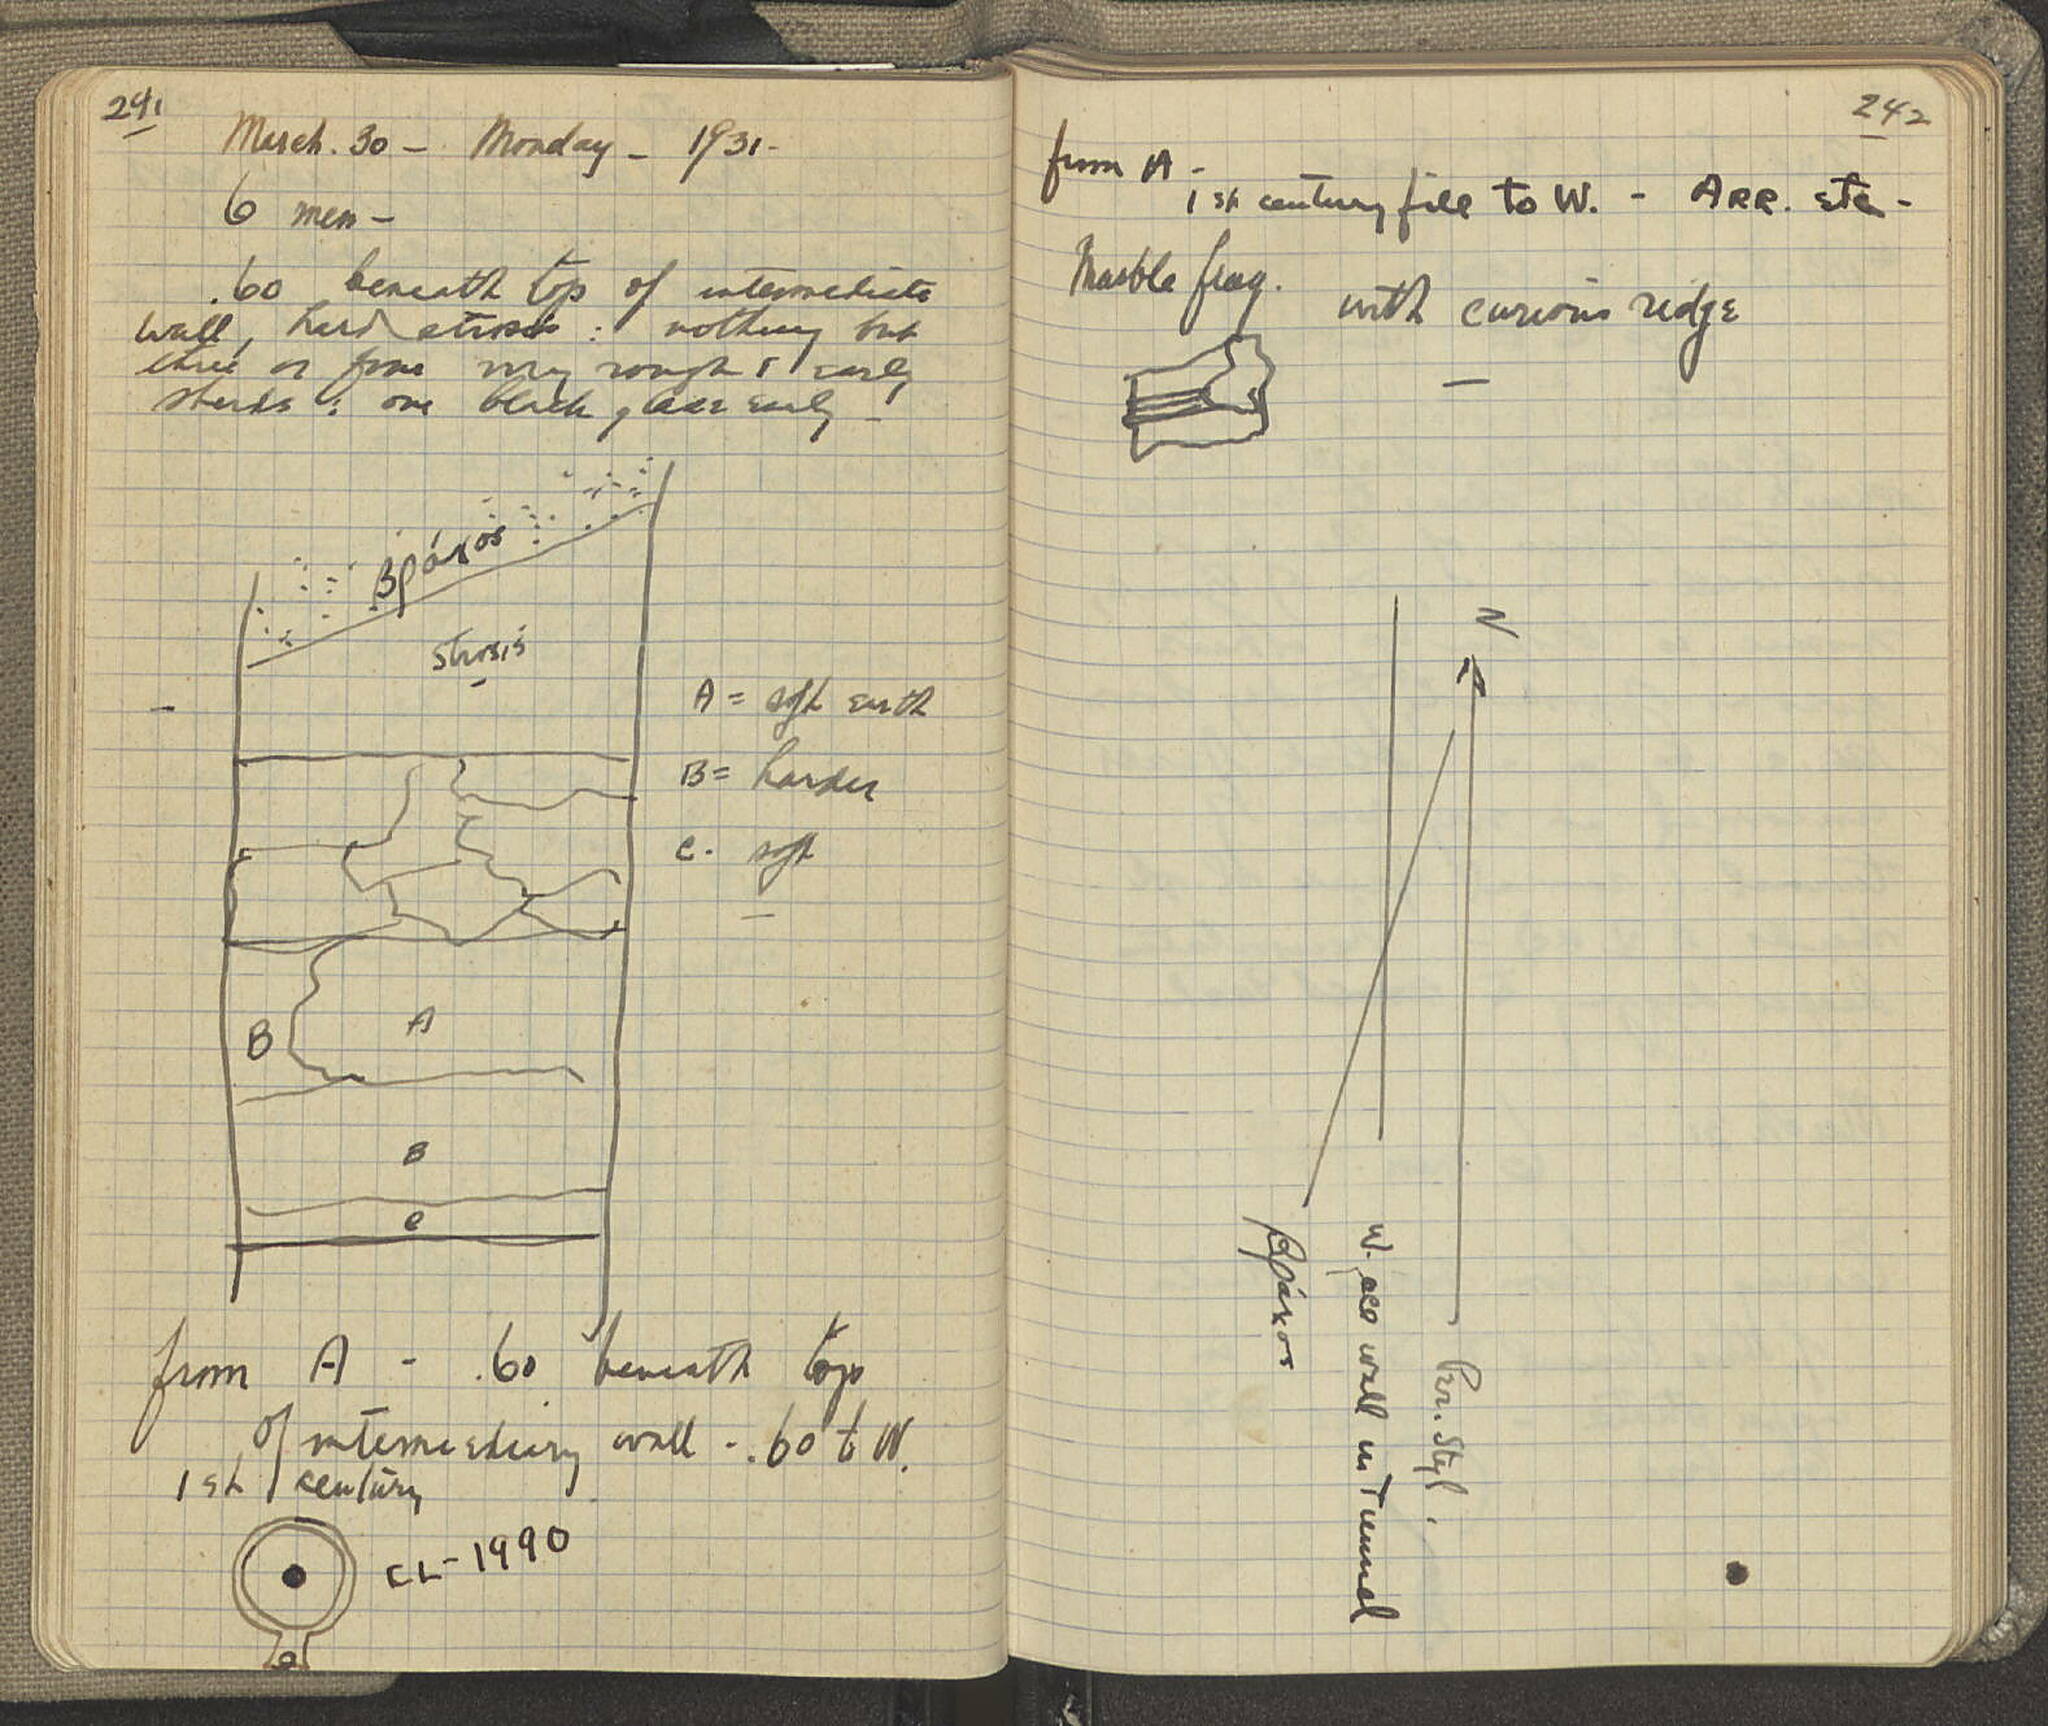 241
March. 30 - Monday - 1931-
6 men -
.60 beneath top of intermediate
wall, hard strosis : nothing but
three or four very rough & early
sherds : one black glaze early -
Βράχος
strosis
A = soft earth
B = harder
C. soft
B
A
B
C
from A - .60 beneath top
of intermediary wall - .60 to W.
1st century
CL-1990
242
from A -
1st century fill to W. - ARR. etc -
Marble frag. with curious ridge
N
βράχος
W. acc wall in Tunnel
Por. Styl.